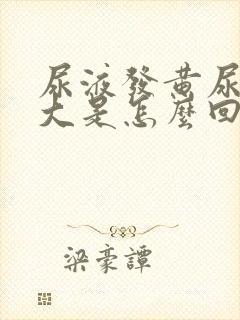 尿液發黃尿
大是怎麼回
梁豪譚